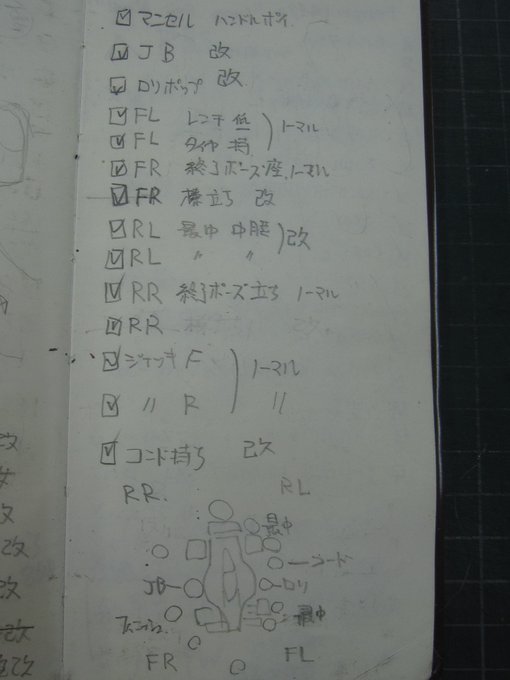 マンセル ハンドルポイ
JB 改
ロリポップ 改
FL レンチ 低
FL タイヤ 持 ノーマル
FR 終了ポーズ座 ノーマル
FR 棒立ち 改
RL 最中 中腰 改
RL 〃 〃
RR 終了ポーズ立ち ノーマル
RR
ジャッキ F ノーマル
〃 R 〃
コード持ち 改
RR. RL
最中
コード
JB ロリ
最中
FR FL
改
改
改
改
改